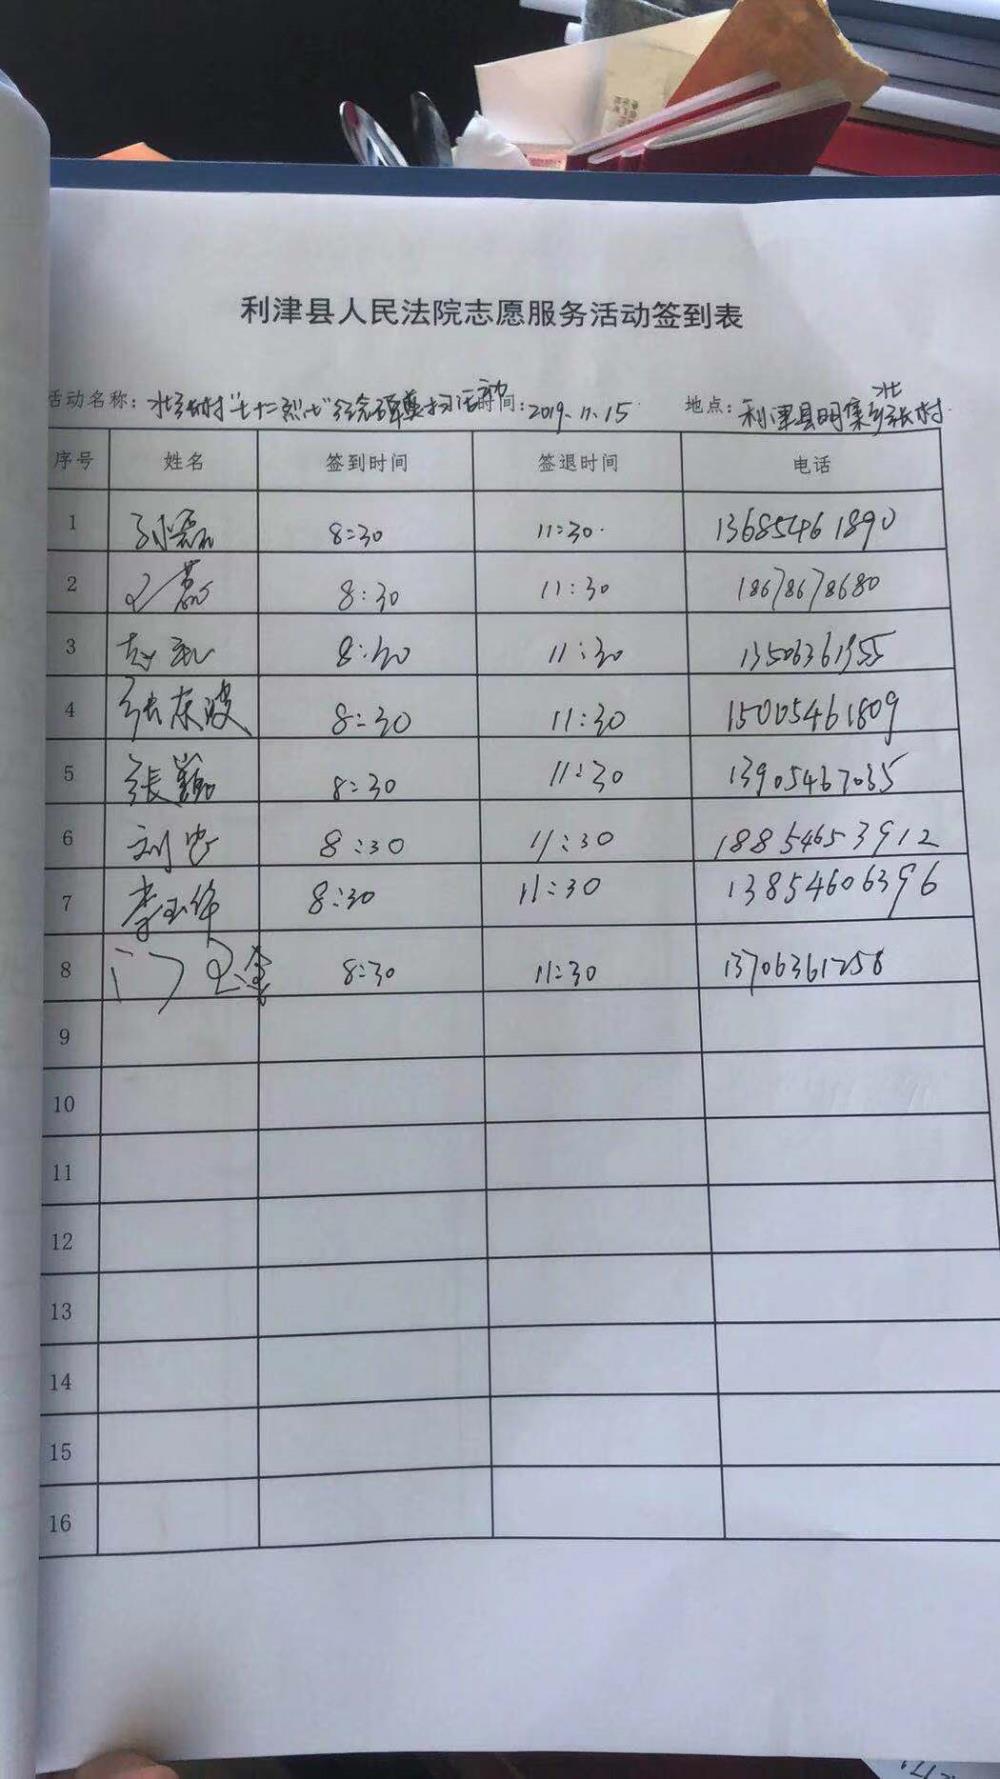 利津县人民法院志愿服务活动签到表
活动名称: 北张村"七十二烈士"纪念碑墓扫活动 时间: 2019.11.15 地点: 利津县明集乡北张村
序号 姓名 签到时间 签退时间 电话
1 孙磊 8:30 11:30 13685461890
2 王磊 8:30 11:30 18678678680
3 8:30 11:30 13506361955
4 张东波 8:30 11:30 15005461809
5 张巍 8:30 11:30 13905467035
6 刘忠 8:30 11:30 18854653912
7 李玉华 8:30 11:30 13854606396
8 8:30 11:30 13706361258
9
10
11
12
13
14
15
16